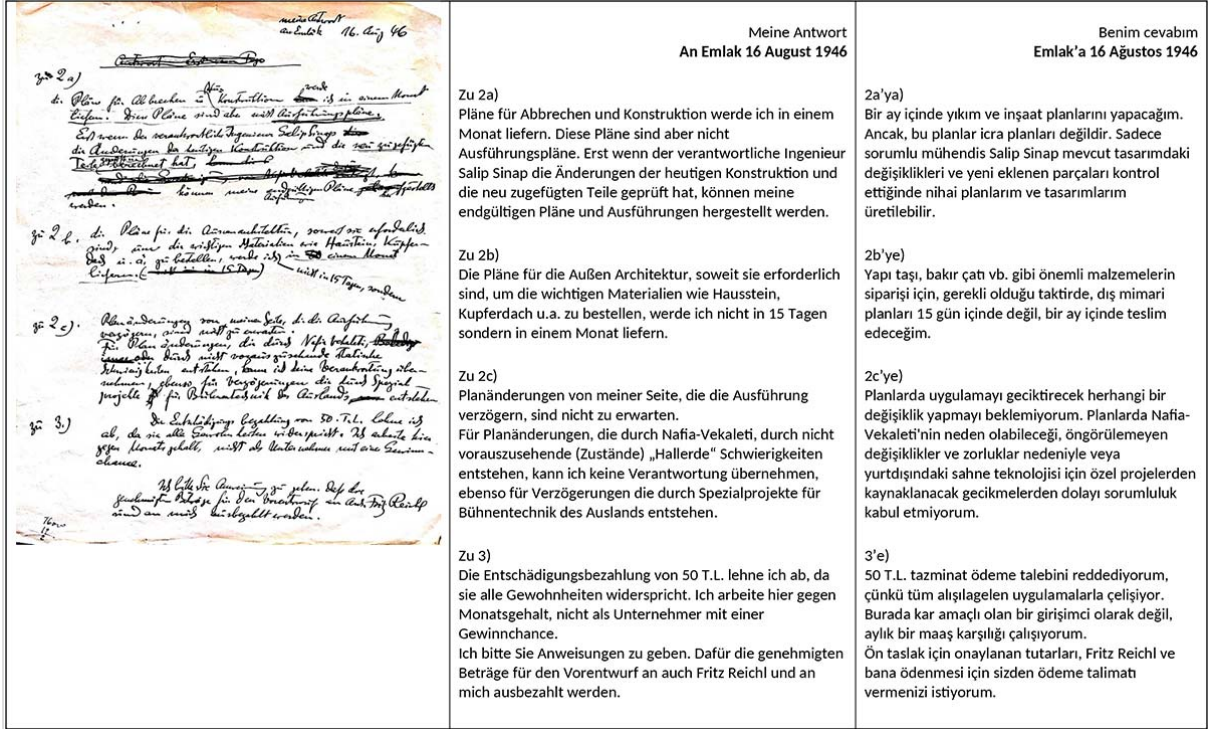 meine Antwort
an Emlak 16. Aug 46
zu 2a)
die Pläne für Abbrechen u. Konstruktion werde ich in einem Monat
liefern. Diese Pläne sind aber nicht Ausführungspläne.
Erst wenn der verantwortliche Ingenieur
die Änderungen der heutigen Konstruktion und die neu zugefügten
Teile hat,
können meine endgültigen Pläne
Ausführungs
werden.
zu 2 b. die Pläne für die Aussenarchitektur, soweit sie erforderlich
sind, um die wichtigen Materialien wie Haustein, Kupfer-
dach u. a. zu bestellen, werde ich in einem Monat
liefern. (nicht in 15 Tagen)
nicht in 15 Tagen, sondern
zu 2c). Planänderungen von meiner Seite, die die Ausführung
verzögern, sind nicht zu erwarten.
Für Planänderungen, die durch Nafia Vekaleti,
oder durch nicht vorauszusehende statische
Schwierigkeiten entstehen, kann ich keine Verantwortung über-
nehmen, ebenso für Verzögerungen die durch Spezial-
projekte für Bühnentechnik des Auslands entstehen
zu 3.) Die Entschädigungsbezahlung von 50.- T.L. lehne ich
ab, da sie alle Gewohnheiten widerspricht. Ich arbeite hier
gegen Monatsgehalt, nicht als Unternehmer mit einer Gewinn-
chance.
Ich bitte Sie Anweisung zu geben, daß die
genehmigten Beträge für den Vorentwurf an Arch. Fritz Reichl
und an mich ausbezahlt werden.
Meine Antwort
An Emlak 16 August 1946
Zu 2a)
Pläne für Abbrechen und Konstruktion werde ich in einem
Monat liefern. Diese Pläne sind aber nicht
Ausführungspläne. Erst wenn der verantwortliche Ingenieur
Salip Sinap die Änderungen der heutigen Konstruktion und
die neu zugefügten Teile geprüft hat, können meine
endgültigen Pläne und Ausführungen hergestellt werden.
Zu 2b)
Die Pläne für die Außen Architektur, soweit sie erforderlich
sind, um die wichtigen Materialien wie Hausstein,
Kupferdach u.a. zu bestellen, werde ich nicht in 15 Tagen
sondern in einem Monat liefern.
Zu 2c)
Planänderungen von meiner Seite, die die Ausführung
verzögern, sind nicht zu erwarten.
Für Planänderungen, die durch Nafia-Vekaleti, durch nicht
vorauszusehende (Zustände) „Hallerde“ Schwierigkeiten
entstehen, kann ich keine Verantwortung übernehmen,
ebenso für Verzögerungen die durch Spezialprojekte für
Bühnentechnik des Auslands entstehen.
Zu 3)
Die Entschädigungsbezahlung von 50 T.L. lehne ich ab, da
sie alle Gewohnheiten widerspricht. Ich arbeite hier gegen
Monatsgehalt, nicht als Unternehmer mit einer
Gewinnchance.
Ich bitte Sie Anweisungen zu geben. Dafür die genehmigten
Beträge für den Vorentwurf an auch Fritz Reichl und an
mich ausbezahlt werden.
Benim cevabım
Emlak’a 16 Ağustos 1946
2a’ya)
Bir ay içinde yıkım ve inşaat planlarını yapacağım.
Ancak, bu planlar icra planları değildir. Sadece
sorumlu mühendis Salip Sinap mevcut tasarımdaki
değişiklikleri ve yeni eklenen parçaları kontrol
ettiğinde nihai planlarım ve tasarımlarım
üretilebilir.
2b’ye)
Yapı taşı, bakır çatı vb. gibi önemli malzemelerin
siparişi için, gerekli olduğu taktirde, dış mimari
planları 15 gün içinde değil, bir ay içinde teslim
edeceğim.
2c’ye)
Planlarda uygulamayı geciktirecek herhangi bir
değişiklik yapmayı beklemiyorum. Planlarda Nafia-
Vekaleti'nin neden olabileceği, öngörülemeyen
değişiklikler ve zorluklar nedeniyle veya
yurtdışındaki sahne teknolojisi için özel projelerden
kaynaklanacak gecikmelerden dolayı sorumluluk
kabul etmiyorum.
3’e)
50 T.L. tazminat ödeme talebini reddediyorum,
çünkü tüm alışılagelen uygulamalarla çelişiyor.
Burada kar amaçlı olan bir girişimci olarak değil,
aylık bir maaş karşılığı çalışıyorum.
Ön taslak için onaylanan tutarları, Fritz Reichl ve
bana ödenmesi için sizden ödeme talimatı
vermenizi istiyorum.